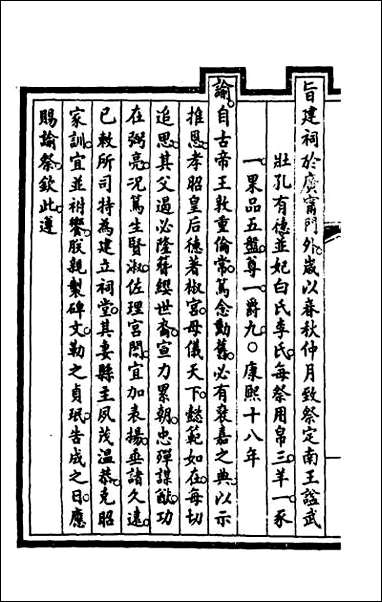 旨建祠於廣甯門外歲以春秋仲月致祭定南王諡武
壯孔有德並妃白氏李氏每祭用帛三羊一豕
一果品五盤尊一爵九○康熙十八年
諭自古帝王敦重倫常篤念勳舊必有襃嘉之典以示
推恩孝昭皇后德著椒宮母儀天下懿範如在每切
追思其父遏必隆簪纓世裔宣力累朝忠殫謀猷功
在弼亮況篤生賢淑佐理宮闈宜加表揚垂諸久遠
已敕所司特為建立祠堂其妻縣主夙茂溫恭克昭
家訓宜並祔饗朕親製碑文勒之貞珉告成之日應
賜諭祭欽此遵